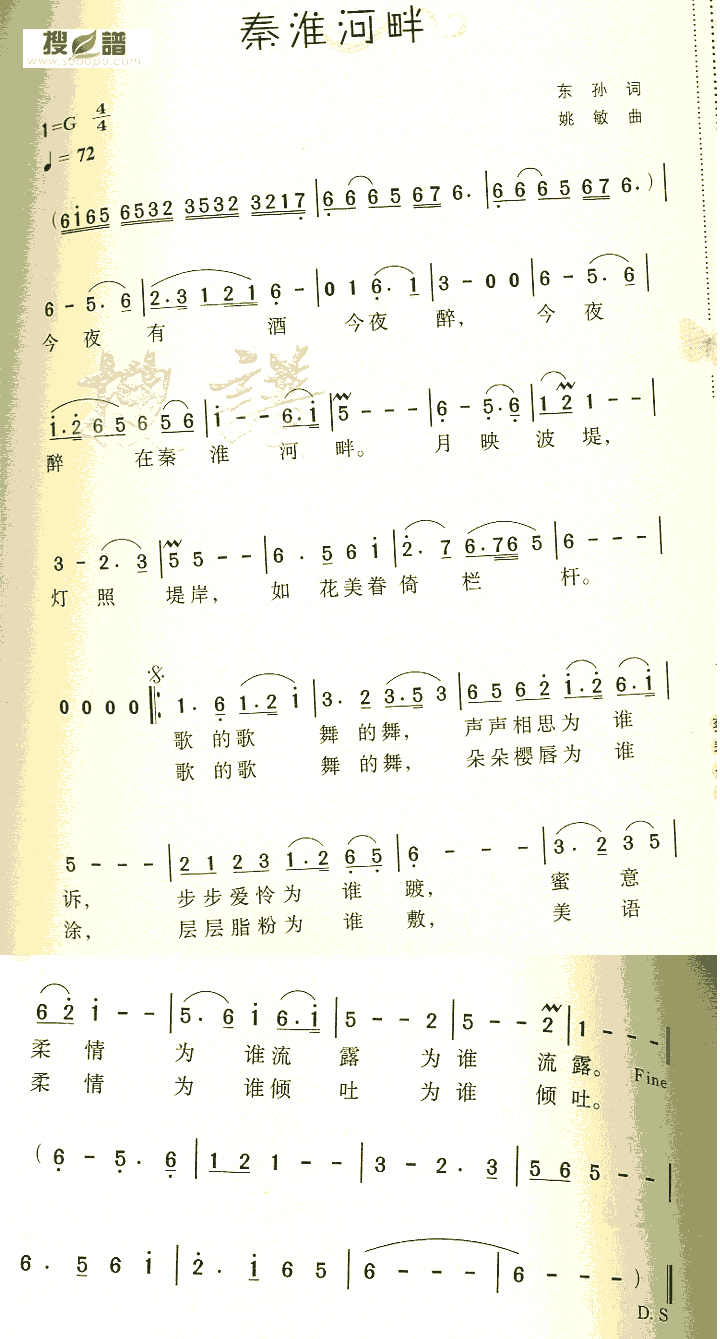 搜谱
www.sooopu.com
秦淮河畔
东孙词
姚敏曲
1=G 4/4
♩= 72
(6i65 6532 3532 3217 | 6 6 6 5 67 6· | 6 6 6 5 67 6·) |
6 - 5· 6 | 2·3 1 2 1 6 - | 0 1 6· 1 | 3 - 0 0 | 6 - 5· 6 |
今夜有酒今夜醉,今夜
i·2 6 5 6 5 6 | i - - 6·i | 5 - - - | 6 - 5·6 | 1 2 1 - - |
醉在秦淮河畔。月映波堤,
3 - 2· 3 | 5 5 - - | 6· 5 6 i | 2· 7 6·76 5 | 6 - - - |
灯照堤岸,如花美眷倚栏杆。
0 0 0 0 ‖: 1· 6 1·2 i | 3· 2 3·5 3 | 6 5 6 2 i·2 6·i |
歌的歌舞的舞,声声相思为谁
歌的歌舞的舞,朵朵樱唇为谁
5 - - - | 2 1 2 3 1·2 6·5 | 6 - - - | 3· 2 3 5 |
诉,步步爱怜为谁踱,蜜意
涂,层层脂粉为谁敷,美语
6 2 i - - | 5· 6 i 6·i | 5 - - 2 | 5 - - 2 | 1 - - - |
柔情为谁流露为谁流露。Fine
柔情为谁倾吐为谁倾吐。
(6 - 5· 6 | 1 2 1 - - | 3 - 2· 3 | 5 6 5 - - |
6· 5 6 i | 2· i 6 5 | 6 - - - | 6 - - -) ‖
D.S